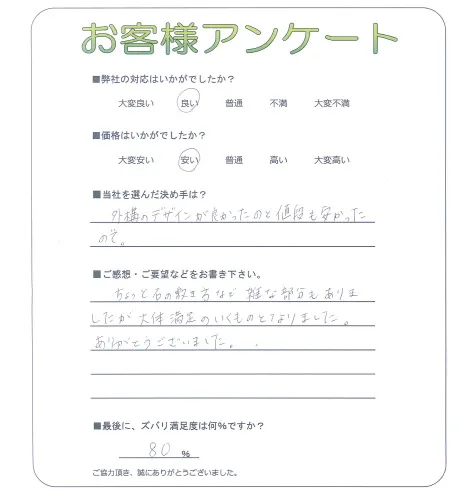 お客様アンケート
■弊社の対応はいかがでしたか？
大変良い 良い 普通 不満 大変不満
■価格はいかがでしたか？
大変安い 安い 普通 高い 大変高い
■当社を選んだ決め手は？
外構のデザインが良かったのと値段も安かった
ので。
■ご感想・ご要望などをお書き下さい。
ちょっと石の敷き方など雑な部分もありま
したが大体満足のいくものとなりました。
ありがとうございました。
■最後に、ズバリ満足度は何％ですか？
80 ％
ご協力頂き、誠にありがとうございました。